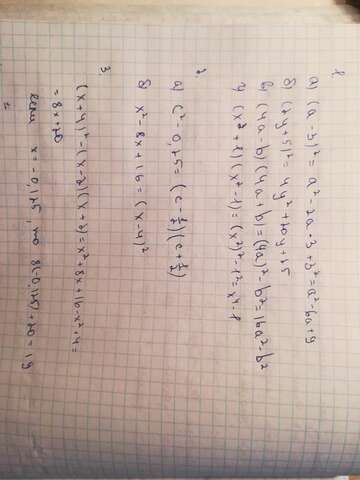 1.
а) (a-3)² = a²-2a·3+3² = a²-6a+9
б) (2y+5)² = 4y²+20y+25
в) (4a-b)(4a+b) = (4a)²-b² = 16a²-b²
г) (x²+1)(x²-1) = (x²)²-1² = x⁴-1
2.
а) c²-0,25 = (c-½)(c+½)
б) x²-8x+16 = (x-4)²
3.
(x+4)²-(x-2)(x+2) = x²+8x+16-x²+4 =
= 8x+20
если x = -0,125, то 8(-0,125)+20 = 19